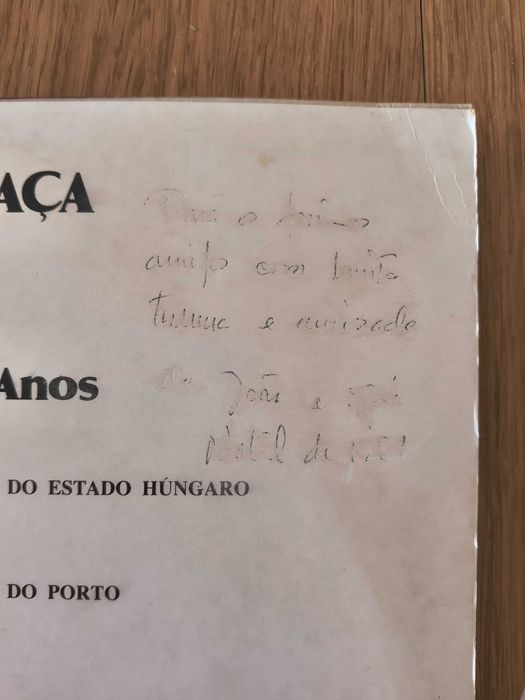 AÇA
Para o
amigo com muita
ternura e amizade
do João e
Natal de
Anos
DO ESTADO HÚNGARO
DO PORTO